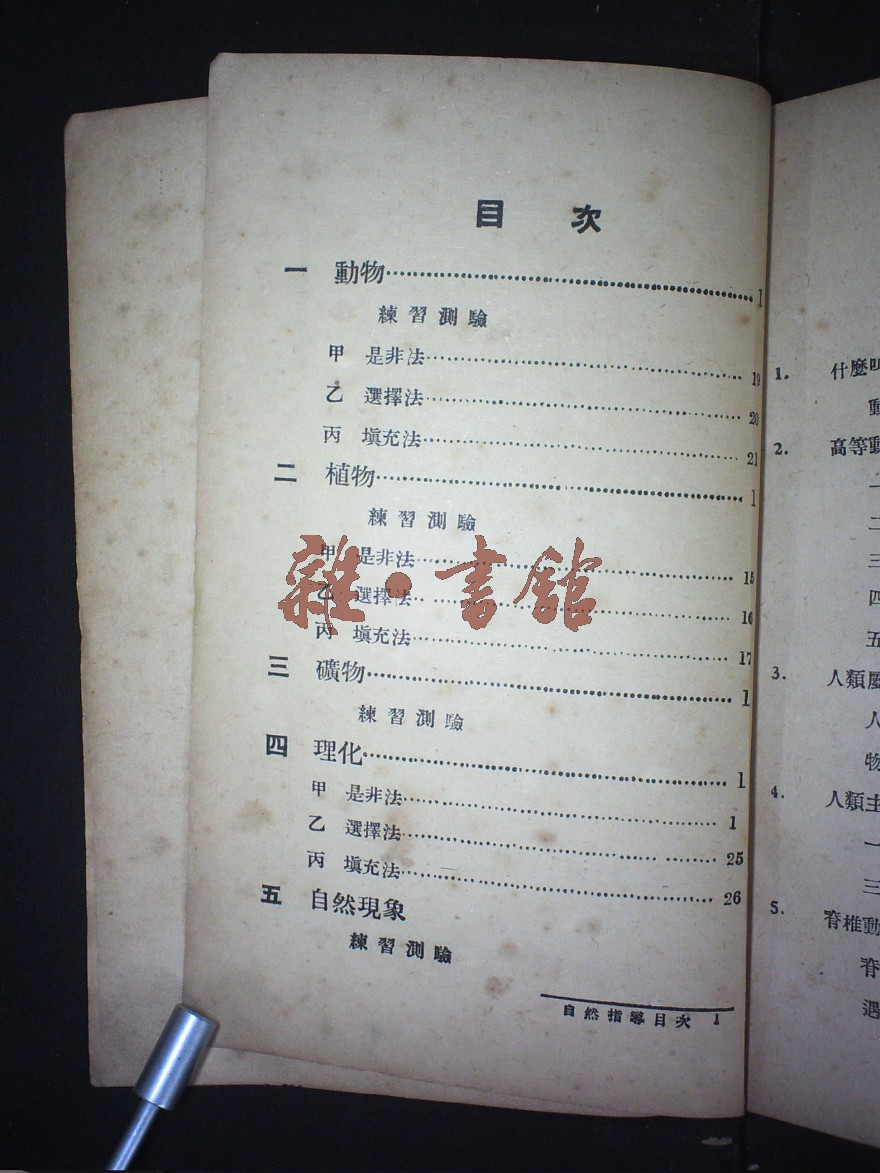 目 次
一 動物 1
練習測驗
甲 是非法 19
乙 選擇法 20
丙 填充法 21
二 植物 1
練習測驗
甲 是非法 15
乙 選擇法 16
丙 填充法 17
三 礦物 1
練習測驗
四 理化 1
甲 是非法 1
乙 選擇法 25
丙 填充法 26
五 自然現象
練習測驗
自然指導目次 1
雜·書館
1. 什麼叫
動
2. 高等動
一
二
三
四
五
3. 人類屬
人
物
4. 人類主
一
三
5. 脊椎動
脊
遇